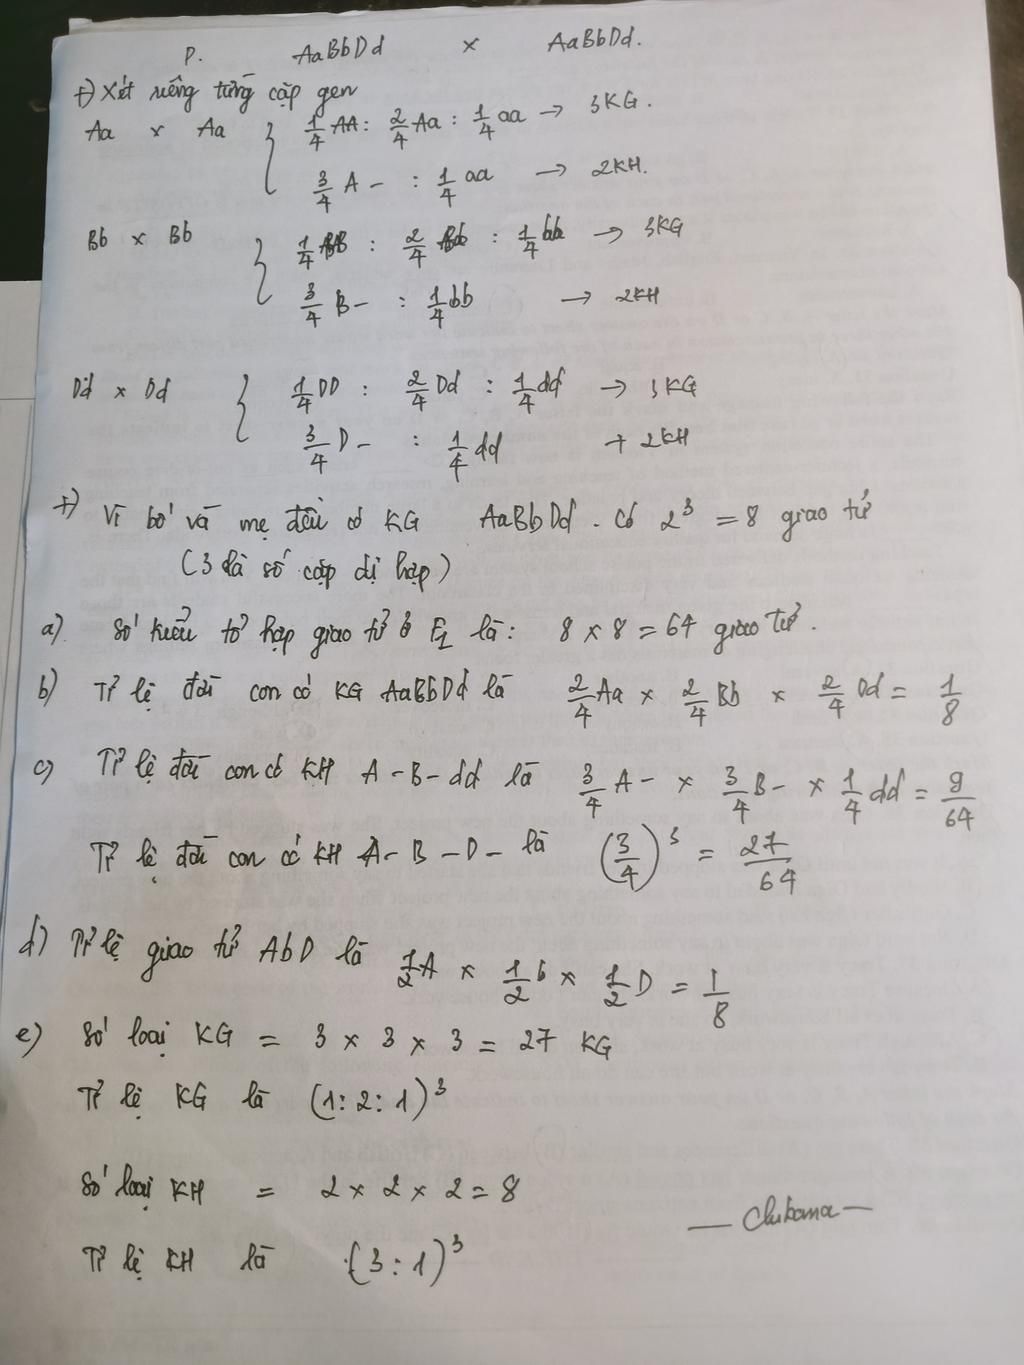 P. AaBbDd x AaBbDd.
+) Xét riêng từng cặp gen
Aa x Aa { 1/4 AA : 2/4 Aa : 1/4 aa → 3KG.
3/4 A- : 1/4 aa → 2KH.
Bb x Bb { 1/4 BB : 2/4 Bb : 1/4 bb → 3KG
3/4 B- : 1/4 bb → 2KH
Dd x Dd { 1/4 DD : 2/4 Dd : 1/4 dd → 3KG
3/4 D- : 1/4 dd → 2KH
+) Vì bố và mẹ đều có KG AaBbDd. Có 2^3 = 8 giao tử
(3 là số cặp dị hợp)
a) Số kiểu tổ hợp giao tử ở F1 là: 8 x 8 = 64 giao tử.
b) Tỉ lệ đời con có KG AaBbDd là 2/4 Aa x 2/4 Bb x 2/4 Dd = 1/8
c) Tỉ lệ đời con có KH A-B-dd là 3/4 A- x 3/4 B- x 1/4 dd = 9/64
Tỉ lệ đời con có KH A-B-D- là (3/4)^3 = 27/64
d) Tỉ lệ giao tử AbD là 1/2 A x 1/2 b x 1/2 D = 1/8
e) Số loại KG = 3 x 3 x 3 = 27 KG
Tỉ lệ KG là (1:2:1)^3
Số loại KH = 2 x 2 x 2 = 8
Tỉ lệ KH là (3:1)^3